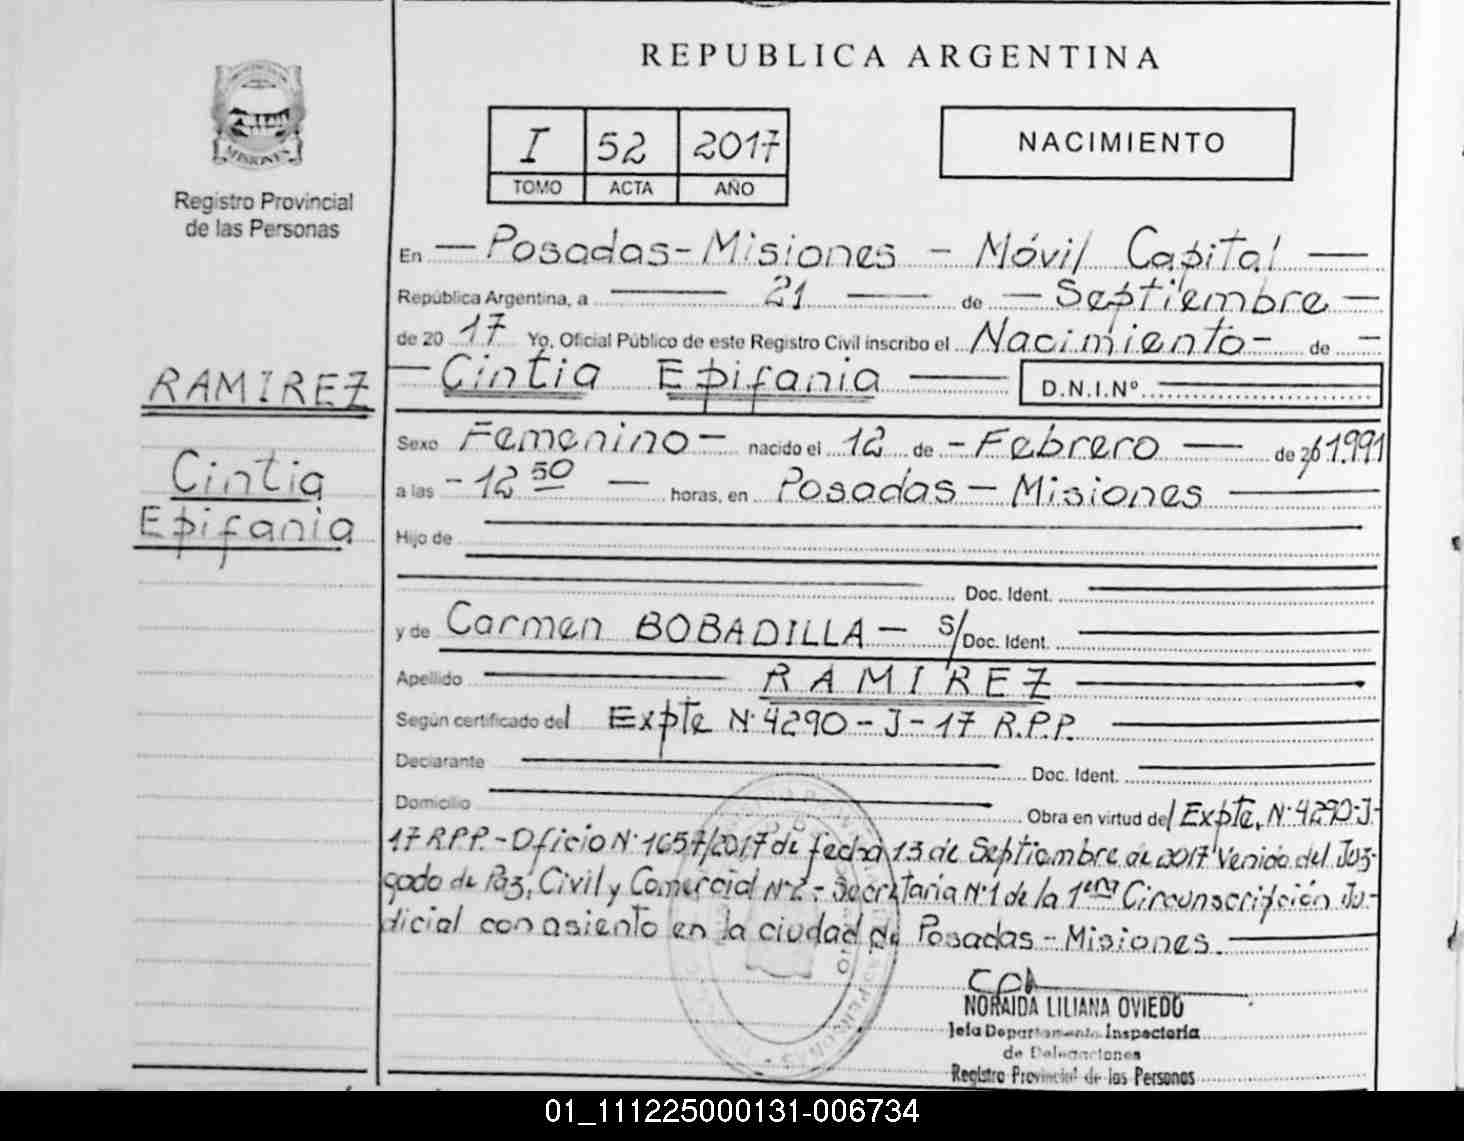 REPUBLICA ARGENTINA
MISIONES
Registro Provincial
de las Personas
I 52 2017
TOMO ACTA AÑO
NACIMIENTO
En Posadas - Misiones - Móvil Capital
República Argentina, a 21 de Septiembre
de 20 17 Yo, Oficial Público de este Registro Civil inscribo el Nacimiento - de
Cintia Epifania D.N.I.Nº
RAMIREZ
Cintia
Epifania
Sexo Femenino - nacido el 12 de - Febrero de 1.991
a las - 12 50 horas, en Posadas - Misiones
Hijo de
Doc. Ident.
y de Carmen BOBADILLA - S/ Doc. Ident.
Apellido RAMIREZ
Según certificado del Expte Nº 4290 - J - 17 R.P.P.
Declarante Doc. Ident.
Domicilio Obra en virtud del Expte. Nº 4290-J-
17 R.P.P. - Oficio Nº 1657/2017 de fecha 13 de Septiembre de 2017 venido del Juz-
gado de Paz, Civil y Comercial Nº 2 - Secretaria Nº 1 de la 1era Circunscripción Ju-
dicial con asiento en la ciudad de Posadas - Misiones.
NORAIDA LILIANA OVIEDO
Jefa Departamento Inspectoria
de Delegaciones
Registro Provincial de las Personas
01_111225000131-006734